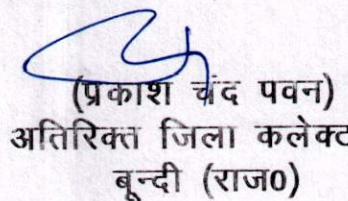 (प्रकाश चंद पवन)
अतिरिक्त जिला कलेक्ट
बून्दी (राज0)